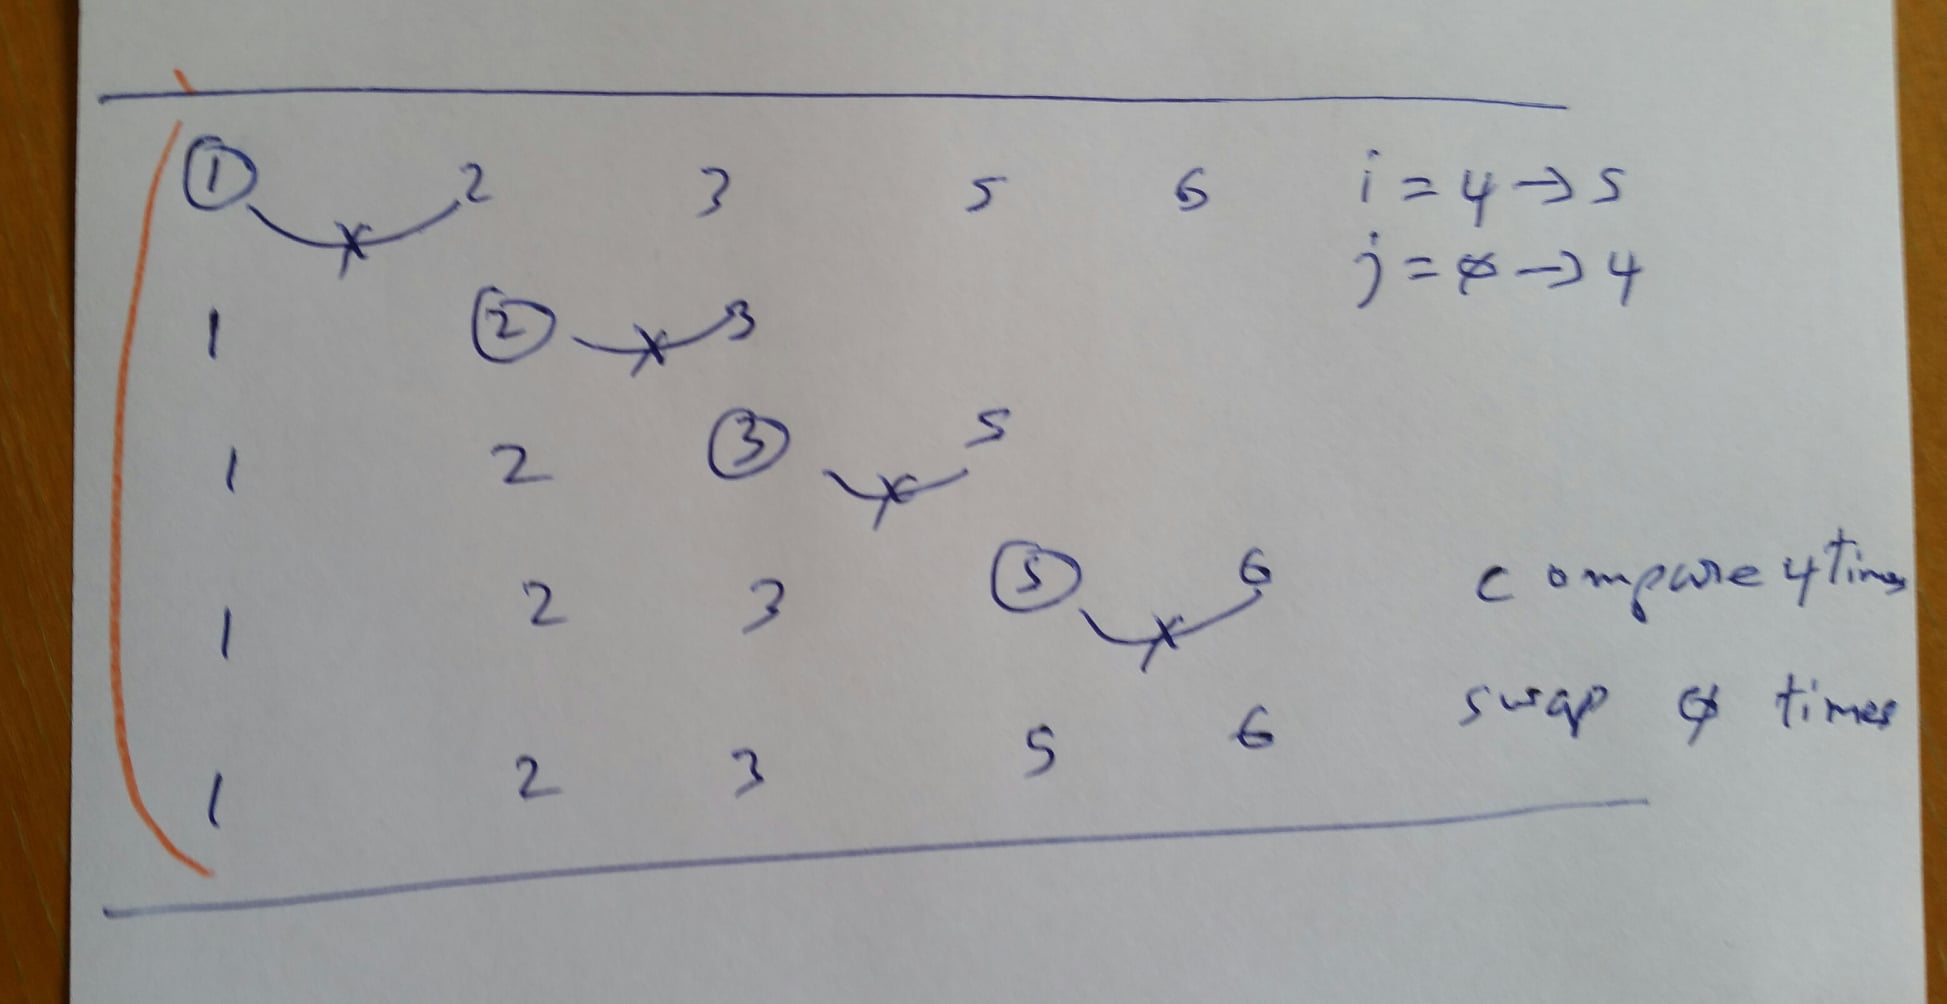 1 2 3 5 6 i = 4 → 5
j = ø → 4
1 2 3
1 2 3 5
1 2 3 5 6 compare 4 times
1 2 3 5 6 swap ø times